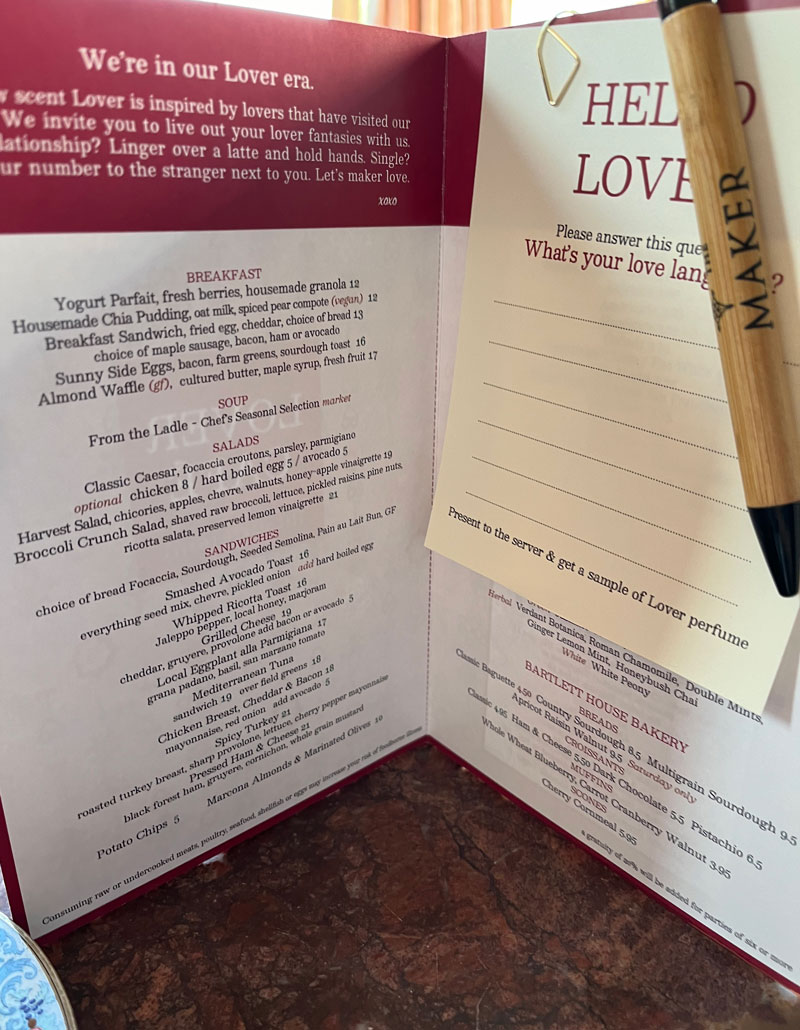 We're in our Lover era.
scent Lover is inspired by lovers that have visited our
We invite you to live out your lover fantasies with us.
Linger over a latte and hold hands. Single?
number to the stranger next to you. Let's maker love.
xoxo
BREAKFAST
Yogurt Parfait, fresh berries, housemade granola 12
Housemade Chia Pudding, oat milk, spiced pear compote (vegan) 12
Breakfast Sandwich, fried egg, cheddar, choice of bread 13
choice of maple sausage, bacon, ham or avocado
Sunny Side Eggs, bacon, farm greens, sourdough toast 16
Almond Waffle (gf), cultured butter, maple syrup, fresh fruit 17
SOUP
From the Ladle - Chef's Seasonal Selection market
SALADS
Classic Caesar, focaccia croutons, parsley, parmigiano
optional chicken 8 / hard boiled egg 5 / avocado 5
Harvest Salad, chicories, apples, chevre, walnuts, honey-apple vinaigrette 19
Broccoli Crunch Salad, shaved raw broccoli, lettuce, pickled raisins, pine nuts,
ricotta salata, preserved lemon vinaigrette 21
SANDWICHES
choice of bread Focaccia, Sourdough, Seeded Semolina, Pain au Lait Bun, GF
Smashed Avocado Toast 16
everything seed mix, chevre, pickled onion add hard boiled egg
Whipped Ricotta Toast 16
Jaleppo pepper, local honey, marjoram
Grilled Cheese 19
cheddar, gruyere, provolone add bacon or avocado 5
Local Eggplant alla Parmigiana 17
grana padano, basil, san marzano tomato
Mediterranean Tuna
sandwich 19 over field greens 18
Chicken Breast, Cheddar & Bacon 18
mayonnaise, red onion add avocado 5
Spicy Turkey 21
roasted turkey breast, sharp provolone, lettuce, cherry pepper mayonnaise
Pressed Ham & Cheese 21
black forest ham, gruyere, cornichon, whole grain mustard
Potato Chips 5 Marcona Almonds & Marinated Olives 19
Consuming raw or undercooked meats, poultry, seafood, shellfish or eggs may increase your risk of foodborne illness
HELLO
LOVE
Please answer this que
What's your love lang ?
Present to the server & get a sample of Lover perfume
MAKER
Herbal Verdant Botanica, Roman Chamomile, Double Mints,
Ginger Lemon Mint, Honeybush Chai
White White Peony
BARTLETT HOUSE BAKERY
BREADS
Classic Baguette 4.50 Country Sourdough 8.5 Multigrain Sourdough 9.5
Apricot Raisin Walnut 9.5 Saturday only
CROISSANTS
Classic 4.95 Ham & Cheese 5.50 Dark Chocolate 5.5 Pistachio 6.5
MUFFINS
Whole Wheat Blueberry, Carrot Cranberry Walnut 3.95
SCONES
Cherry Cornmeal 5.95
a gratuity of 20% will be added for parties of six or more